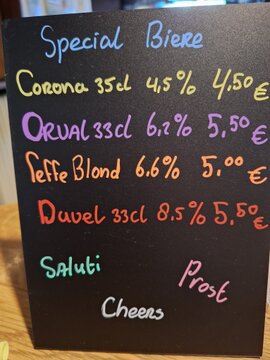 Special Biere
Corona 35cl 4,5% 4,50€
Orval 33cl 6,2% 5,50€
Leffe Blond 6.6% 5,00€
Duvel 33cl 8,5% 5,50€
Saluti
Prost
Cheers